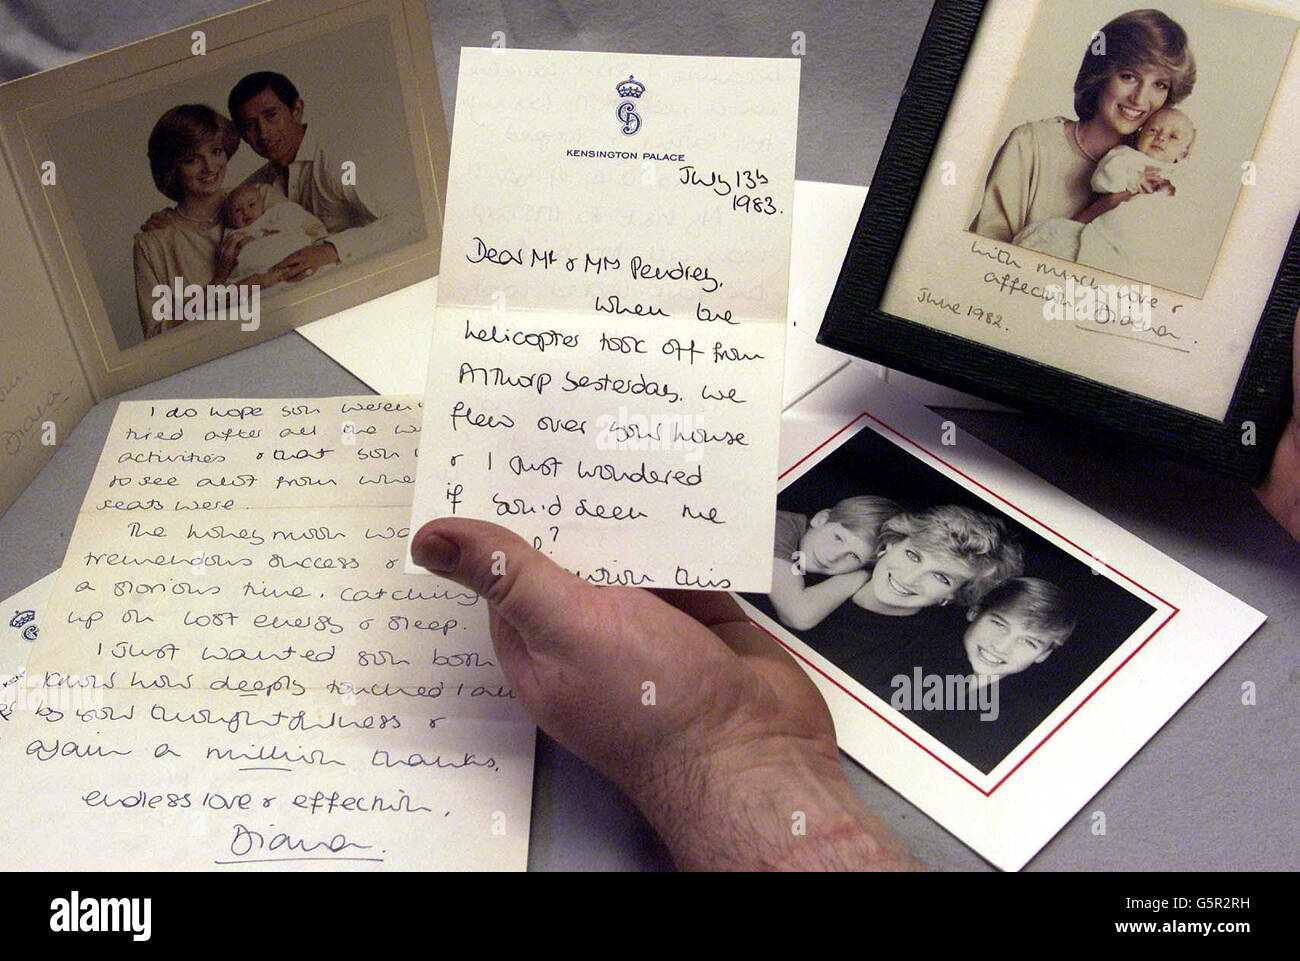 KENSINGTON PALACE
July 13th
1983.
Dear Mr & Mrs Pendrey,
When the
helicopter took off from
Althorp yesterday, we
flew over your house
& I just wondered
if you'd seen me
?
mention this
I do hope you weren't
tired after all the
activities & that you
to see alot from where
seats were.
The honeymoon
tremendous success &
a glorious time, catching
up on lost energy & sleep.
I just wanted you both
know how deeply touched I am
by your thoughtfulness &
again a million thanks.
endless love & affection,
Diana.
Diana
with much love &
affection, Diana
June 1982.
alamy
alamy
Image ID: G5R2RH
www.alamy.com